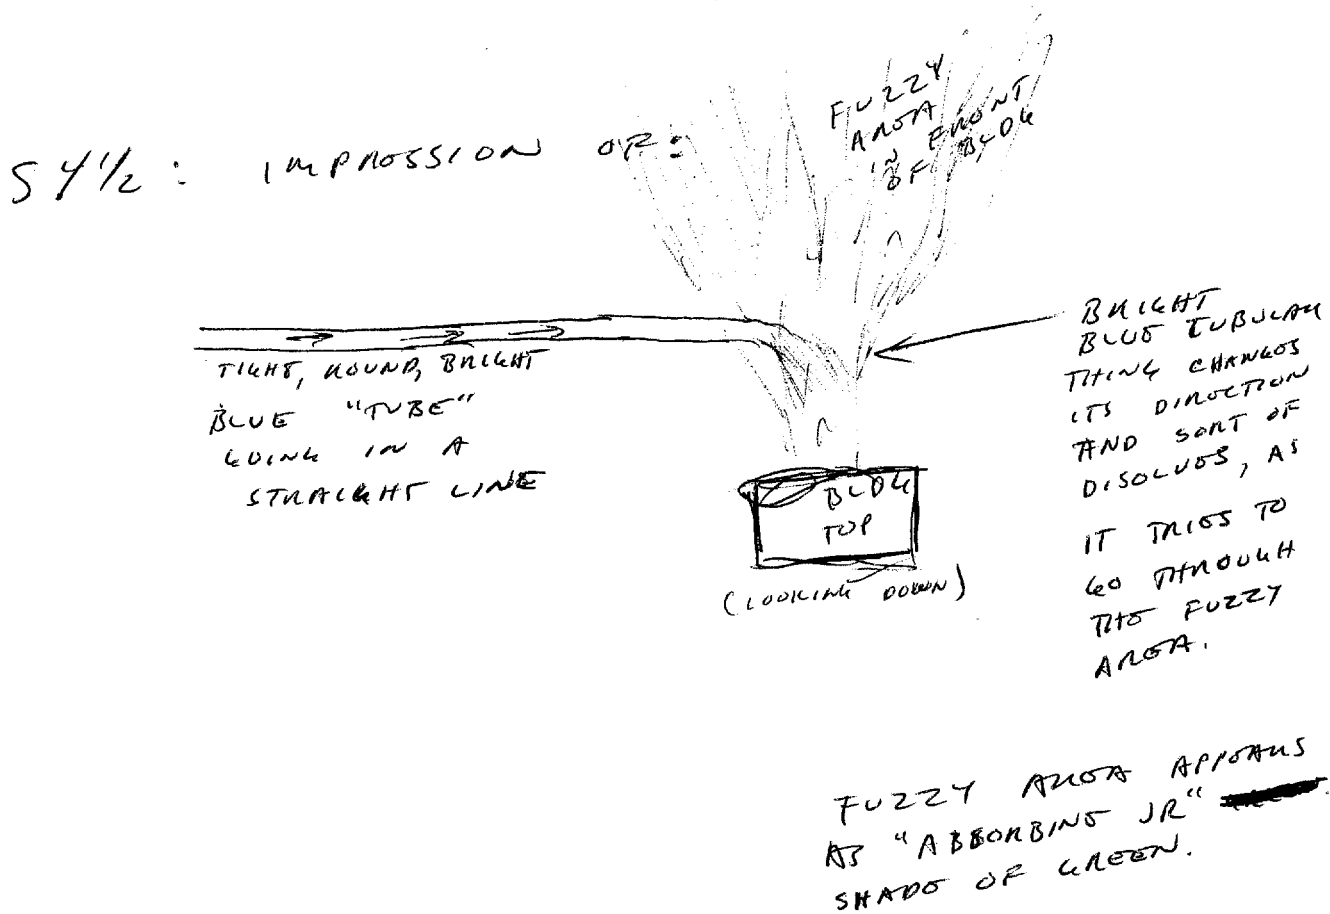 S 4 1/2 : IMPRESSION OF :
FUZZY
AREA
IN FRONT
OF BLDG
TIGHT, ROUND, BRIGHT
BLUE "TUBE"
GOING IN A
STRAIGHT LINE
BRIGHT
BLUE TUBULAR
THING CHANGES
ITS DIRECTION
AND SORT OF
DISOLVES, AS
IT TRIES TO
GO THROUGH
THE FUZZY
AREA.
BLDG
TOP
(LOOKING DOWN)
FUZZY AREA APPEARS
AS "ABSORBINE JR"
SHADE OF GREEN.